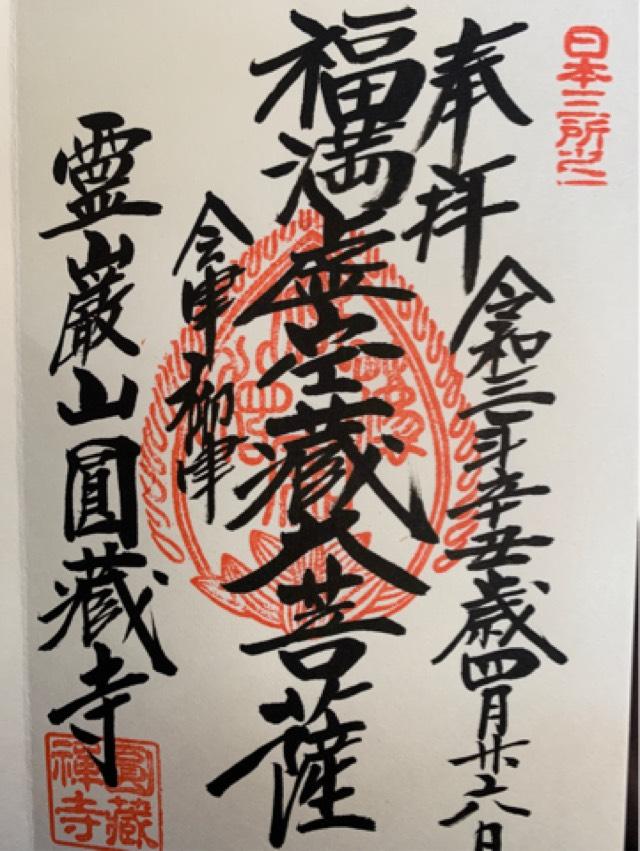 日本三所之一
奉拝
令和三年辛丑歳四月廿六日
福満虚空蔵大菩薩
会津柳津
霊巌山圓蔵寺
圓藏禪寺